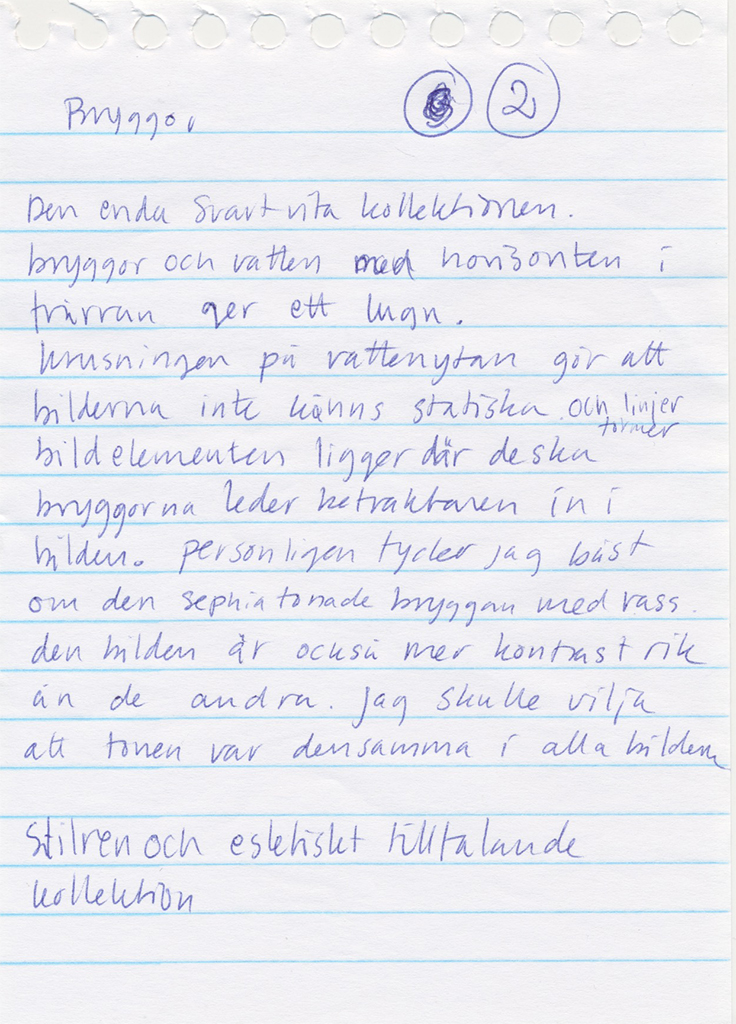 Bryggor 2
Den enda svartvita kollektionen.
bryggor och vatten med horisonten i
fjärran ger ett lugn.
krusningen på vattenytan gör att
bilderna inte känns statiska. och linjer
former
bildelementen ligger där de ska
bryggorna leder betraktaren in i
bilden. personligen tycker jag bäst
om den sephiatonade bryggan med vass.
den bilden är också mer kontrastrik
än de andra. jag skulle vilja
att tonen var densamma i alla bilderna
Stilren och estetiskt tilltalande
kollektion